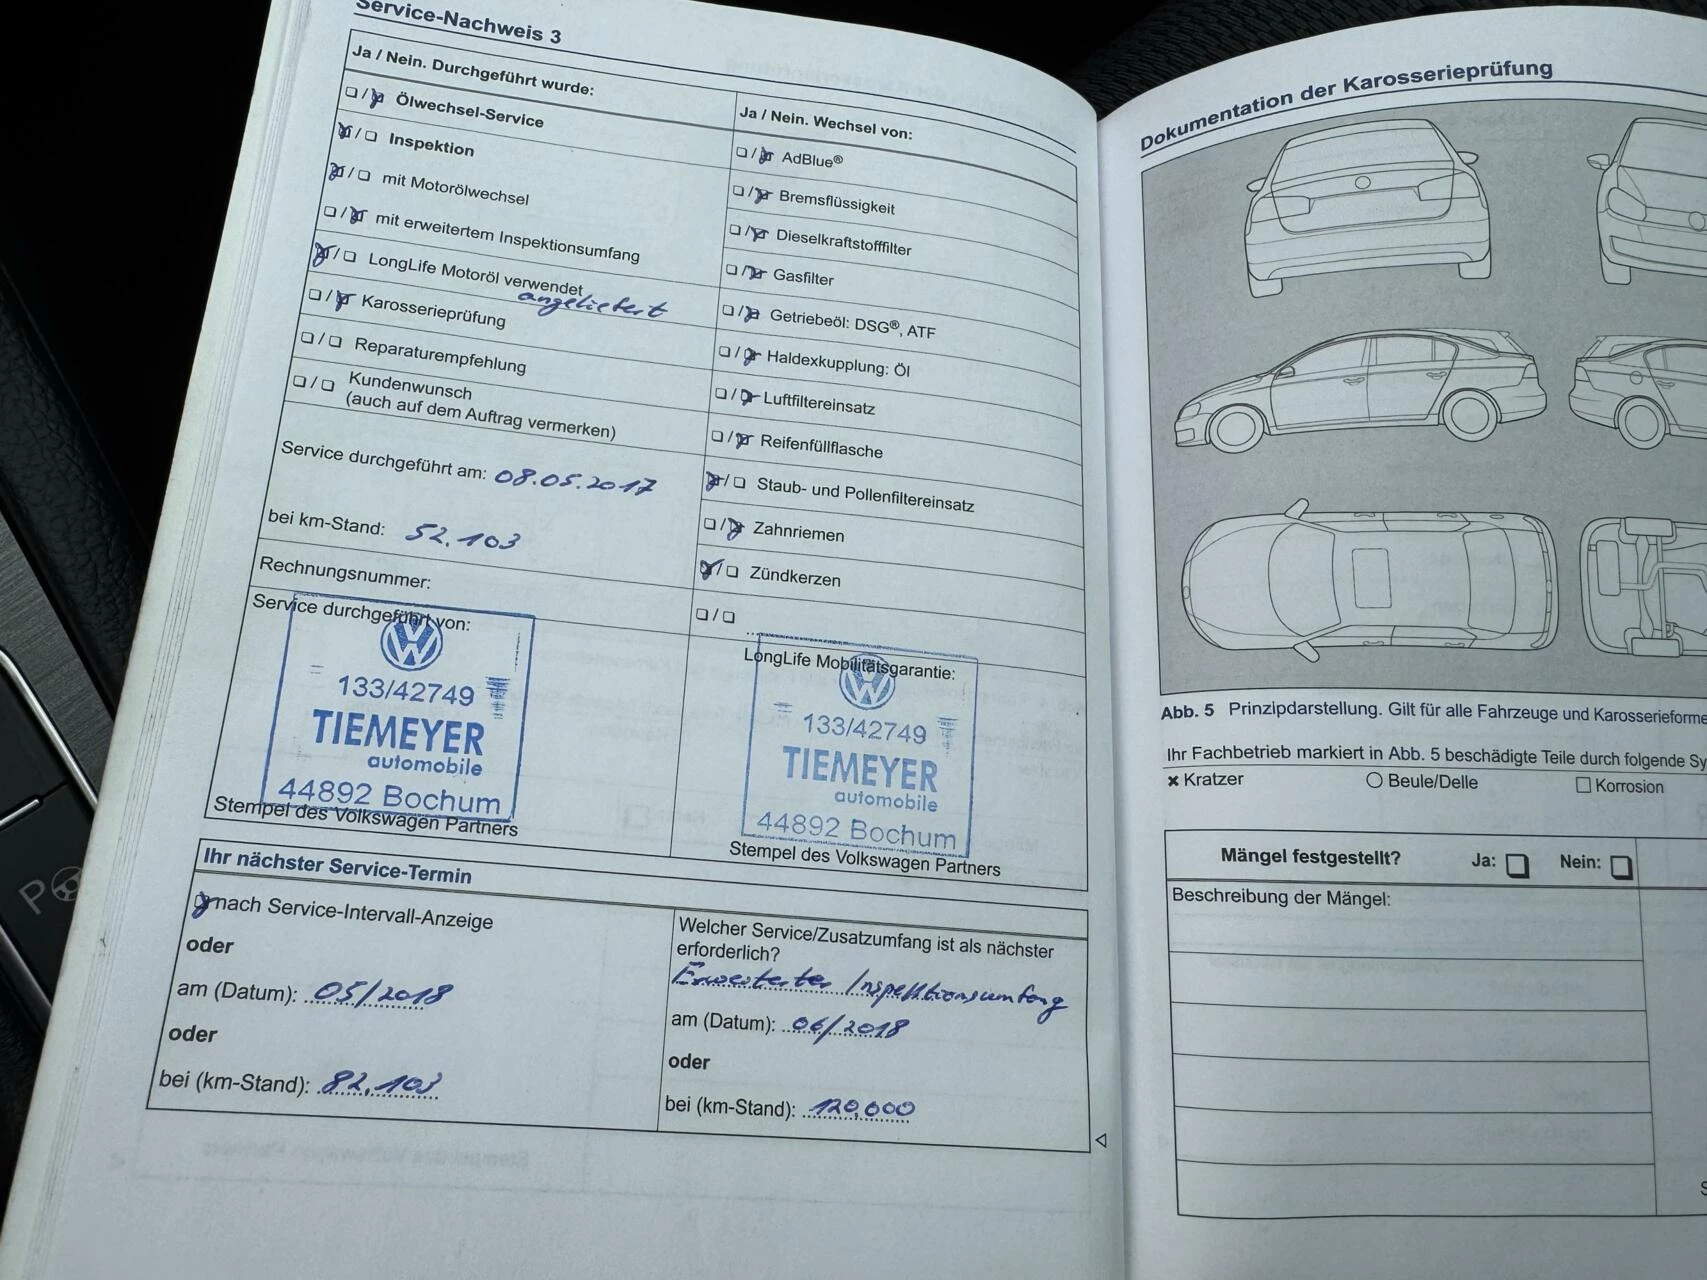 Service-Nachweis 3
Ja / Nein. Durchgeführt wurde:
Ölwechsel-Service
Inspektion
mit Motorölwechsel
mit erweitertem Inspektionsumfang
LongLife Motoröl verwendet
angeliefert
Karosserieprüfung
Reparaturempfehlung
Kundenwunsch
(auch auf dem Auftrag vermerken)
Service durchgeführt am: 08.05.2017
bei km-Stand: 52.103
Rechnungsnummer:
Service durchgeführt von:
133/42749
TIEMEYER
automobile
44892 Bochum
Stempel des Volkswagen Partners
Ja / Nein. Wechsel von:
AdBlue®
Bremsflüssigkeit
Dieselkraftstofffilter
Gasfilter
Getriebeöl: DSG®, ATF
Haldexkupplung: Öl
Luftfiltereinsatz
Reifenfüllflasche
Staub- und Pollenfiltereinsatz
Zahnriemen
Zündkerzen
LongLife Mobilitätsgarantie:
133/42749
TIEMEYER
automobile
44892 Bochum
Stempel des Volkswagen Partners
Ihr nächster Service-Termin
nach Service-Intervall-Anzeige
oder
am (Datum): 05/2018
oder
bei (km-Stand): 82.103
Welcher Service/Zusatzumfang ist als nächster
erforderlich?
Erweiterter Inspektionsumfang
am (Datum): 06/2018
oder
bei (km-Stand): 120.000
Dokumentation der Karosserieprüfung
Abb. 5 Prinzipdarstellung. Gilt für alle Fahrzeuge und Karosserieforme
Ihr Fachbetrieb markiert in Abb. 5 beschädigte Teile durch folgende Sy
Kratzer
Beule/Delle
Korrosion
Mängel festgestellt? Ja: Nein:
Beschreibung der Mängel: